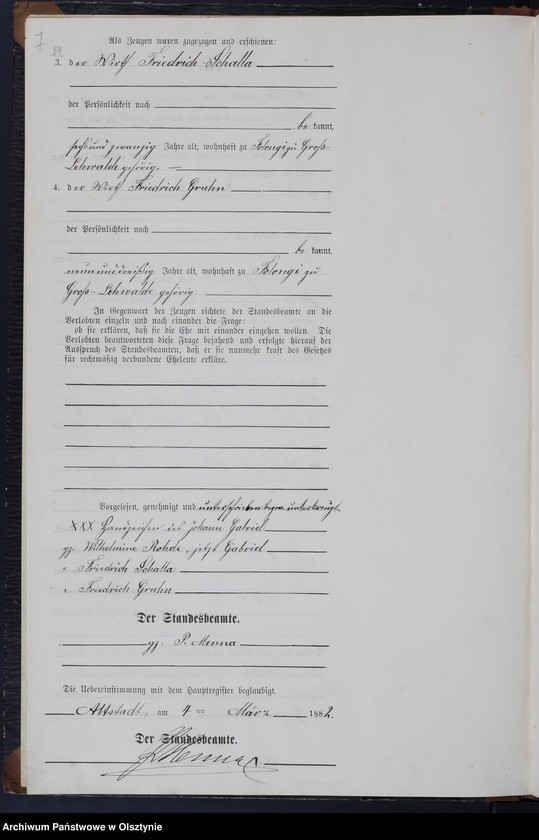 7
Als Zeugen waren zugezogen und erschienen:
3. der Wirth Friedrich Schalla
der Persönlichkeit nach
be kannt,
sechsundzwanzig Jahre alt, wohnhaft zu Klongi zu Groß-
Lehwalde gehörig.
4. der Wirth Friedrich Gruhn
der Persönlichkeit nach
be kannt,
neununddreißig Jahre alt, wohnhaft zu Klongi zu
Groß-Lehwalde gehörig
In Gegenwart der Zeugen richtete der Standesbeamte an die
Verlobten einzeln und nach einander die Frage:
ob sie erklären, daß sie die Ehe mit einander eingehen wollen. Die
Verlobten beantworteten diese Frage bejahend und erfolgte hierauf der
Ausspruch des Standesbeamten, daß er sie nunmehr kraft des Gesetzes
für rechtmäßig verbundene Eheleute erkläre.
Vorgelesen, genehmigt und unterschrieben bezw. unterkreuzt.
XXX Handzeichen des Johann Gabriel
gz. Wilhelmine Rohde, jetzt Gabriel
" Friedrich Schalla
" Friedrich Gruhn
Der Standesbeamte.
gz. P. Menna
Die Uebereinstimmung mit dem Hauptregister beglaubigt.
Altstadt, am 4 ten März 1882.
Der Standesbeamte.
Menna
Archiwum Państwowe w Olsztynie